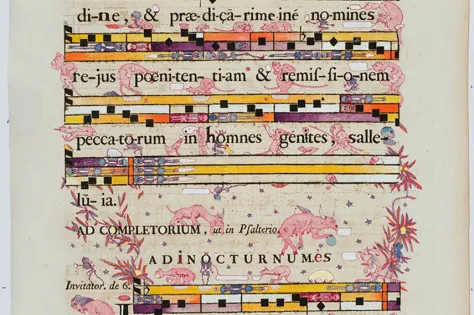 di-ne, & præ-di-çā-rime-iné no-mines
re-jus pœni-ten- ti-am & remis-si-o-nem
pecca-to-rum in hömnes génites, salle-
lū-ia.
AD COMPLETORIUM, ut in Psalterio.
ADiNOCTURNUMeS
Invitator. de 6.